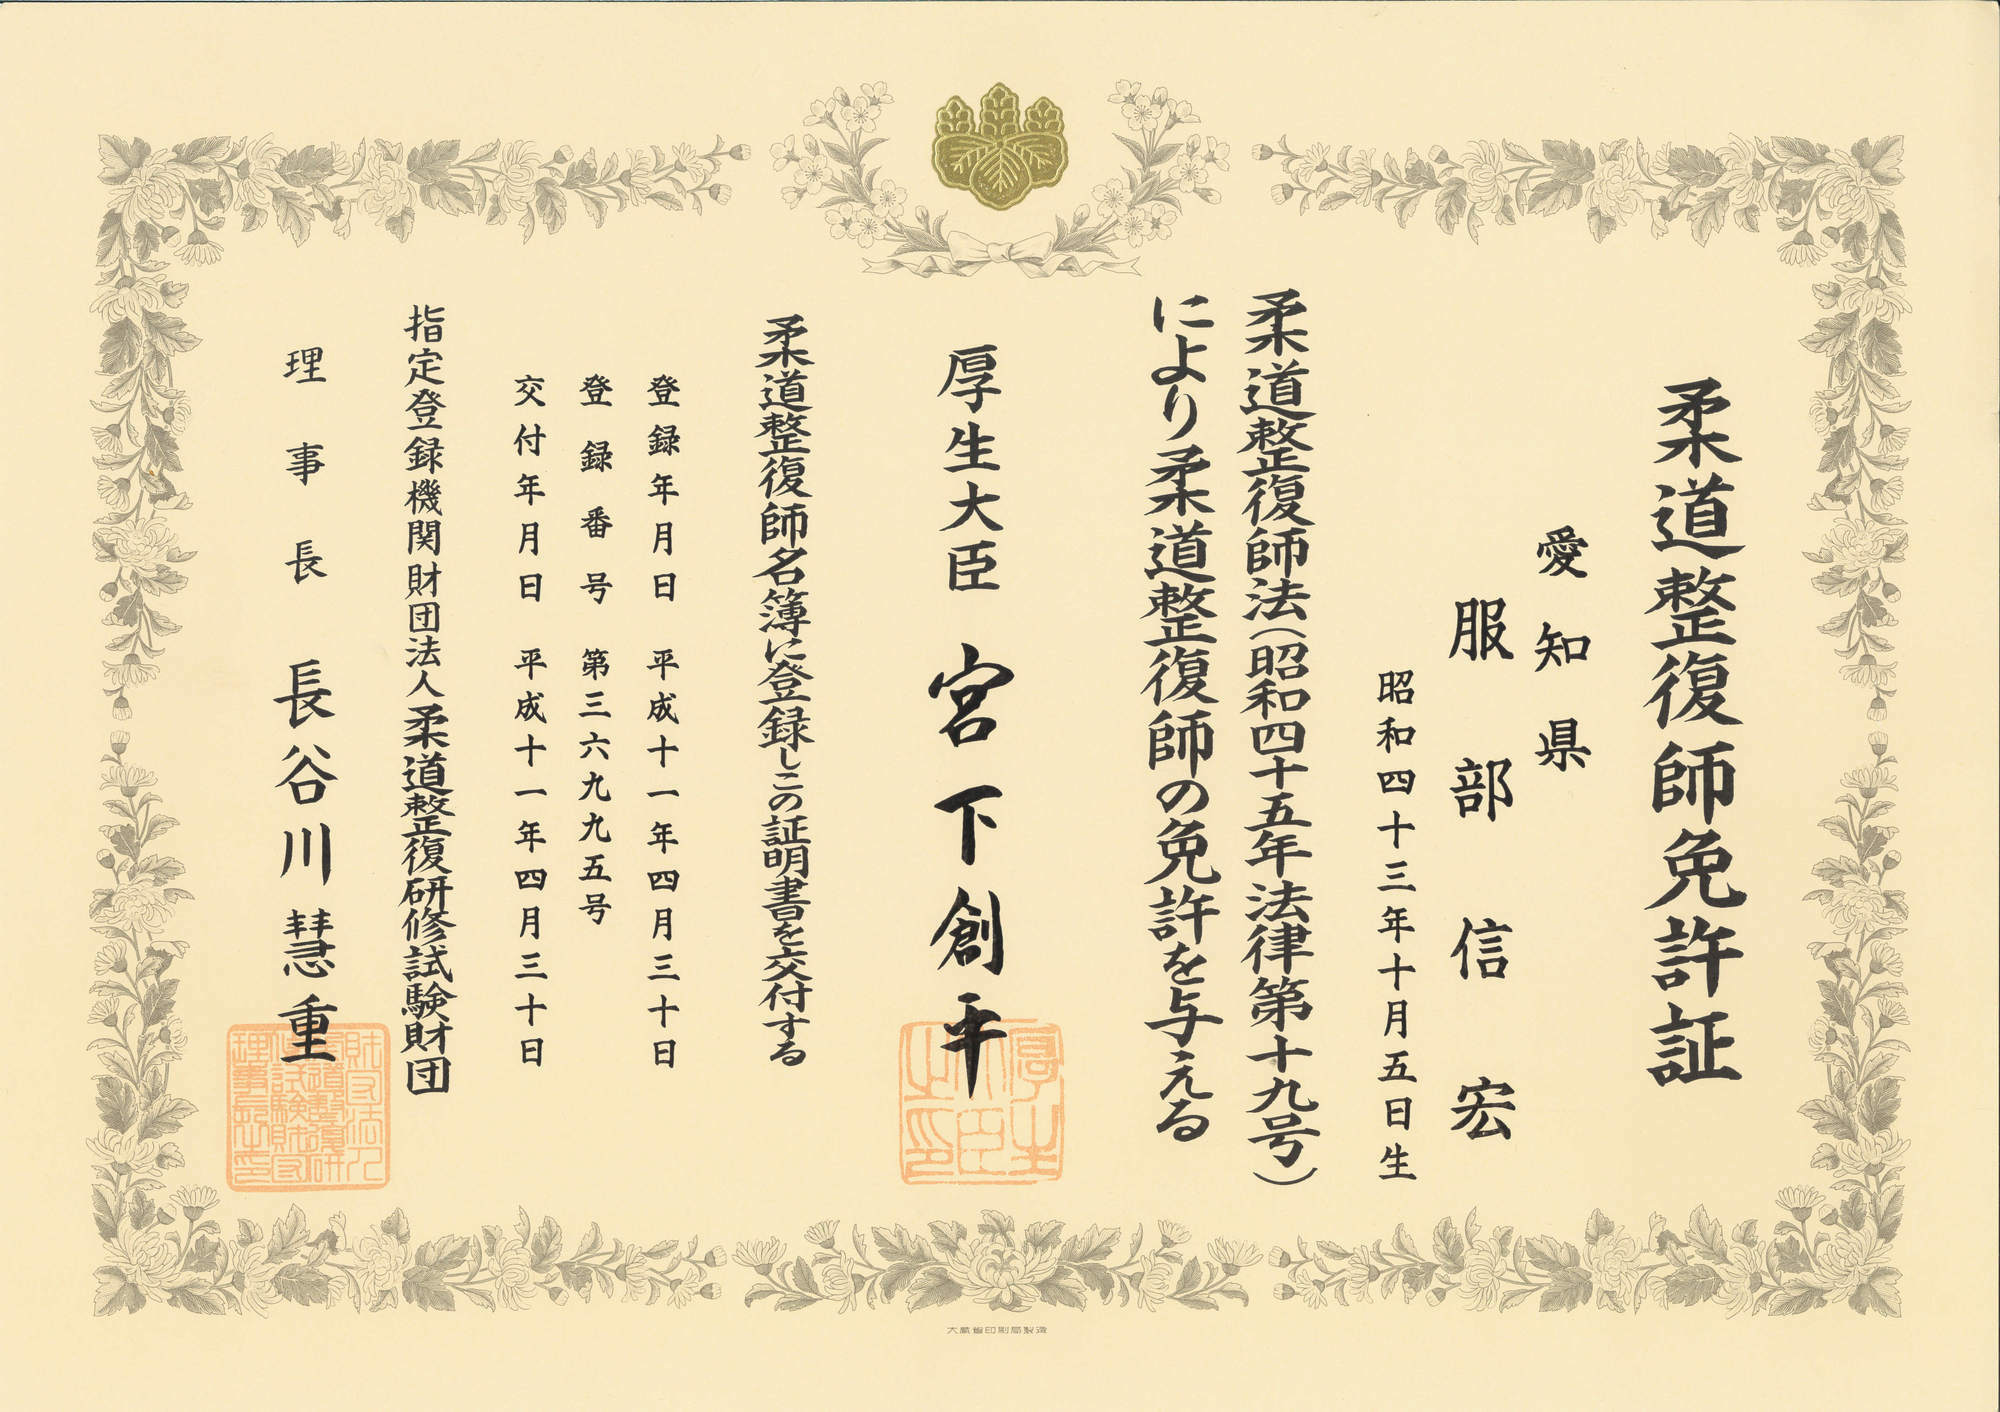 柔道整復師免許証
愛知県
服部信宏
昭和四十三年十月五日生
柔道整復師法(昭和四十五年法律第十九号)
により柔道整復師の免許を与える
厚生大臣 宮下創平
厚生大臣之印
柔道整復師名簿に登録しこの証明書を交付する
登録年月日 平成十一年四月三十日
登録番号 第三六九九五号
交付年月日 平成十一年四月三十日
指定登録機関財団法人柔道整復研修試験財団
理事長 長谷川慧重
大蔵省印刷局製造